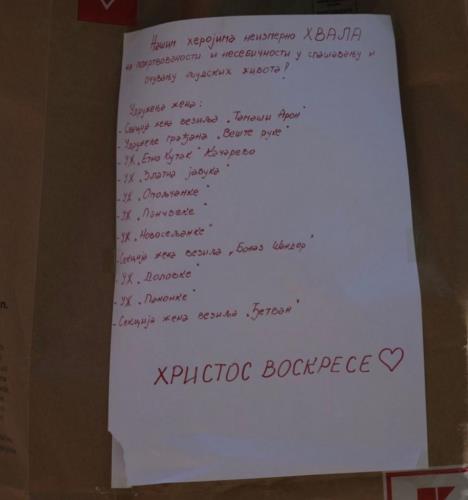 Нашим херојима неизмерно ХВАЛА
на пожртвованости и несебичности у спашавању и
очувању људских живота!
Удружења жена:
- Секција жена везиља „Тамаши Арон"
- Удружење грађана „Веште руке"
- УЖ „Етно Кутак" Качарево
- УЖ „Златна јабука"
- УЖ „Опољчанке"
- УЖ „Панчевке"
- УЖ „Новосељанке"
- Секција жена везиља „Боназ Шандор"
- УЖ „Доловке"
- УЖ „Панонке"
- Секција жена везиља „Ђетван"
ХРИСТОС ВОСКРЕСЕ